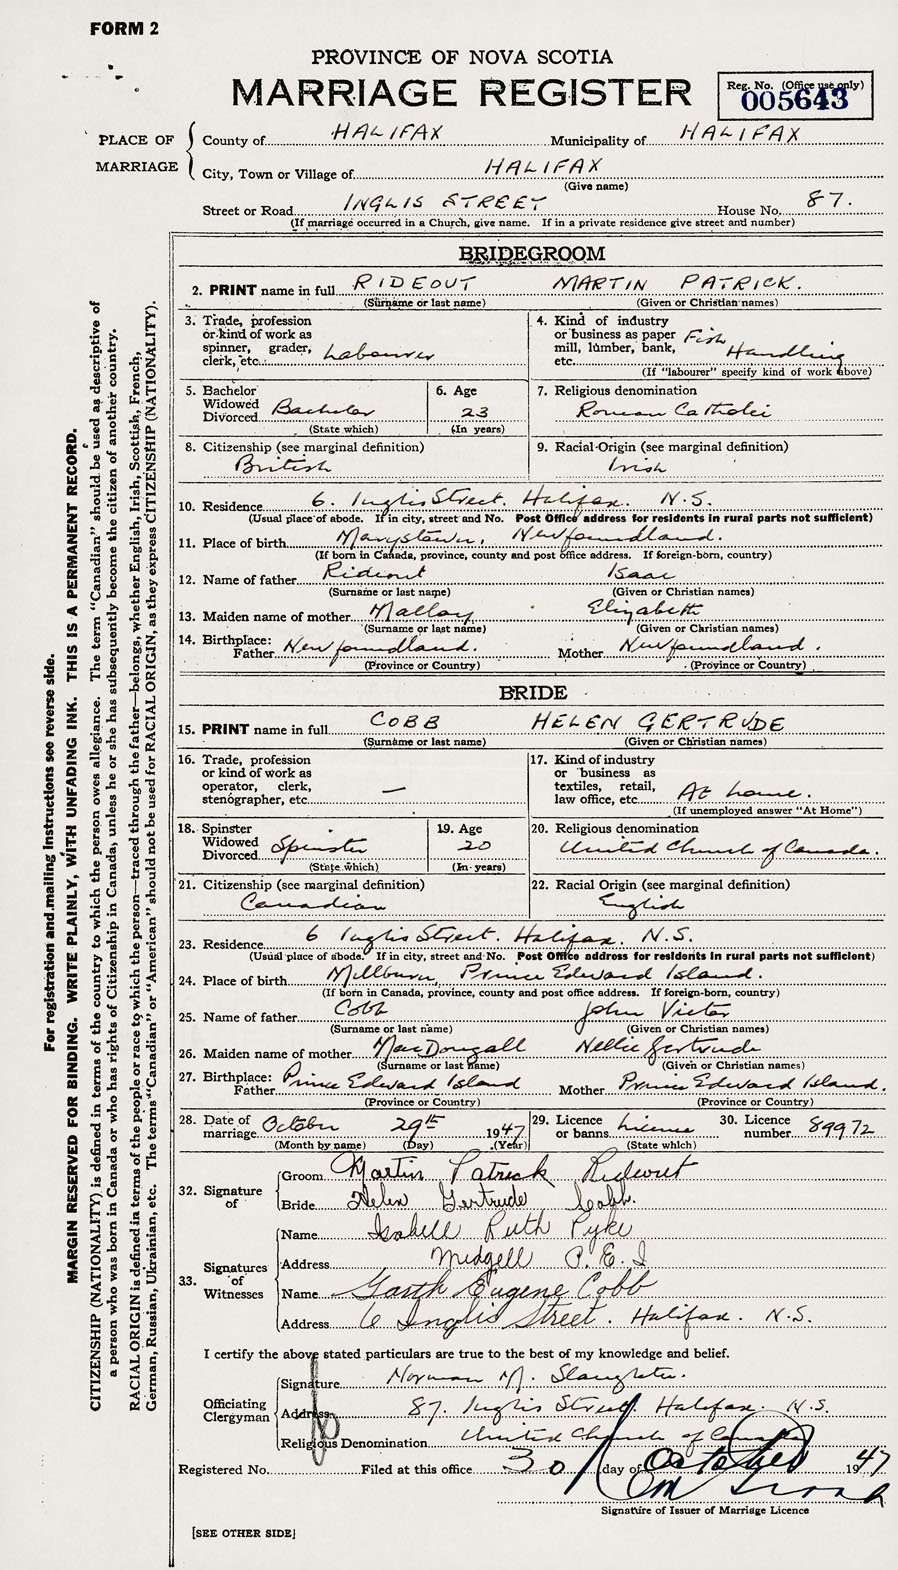 FORM 2
PROVINCE OF NOVA SCOTIA
MARRIAGE REGISTER
Reg. No. (Office use only)
005643
PLACE OF MARRIAGE
County of HALIFAX Municipality of HALIFAX
City, Town or Village of HALIFAX
(Give name)
Street or Road INGLIS STREET House No. 87.
(If marriage occurred in a Church, give name. If in a private residence give street and number)
BRIDEGROOM
2. PRINT name in full RIDEOUT MARTIN PATRICK.
(Surname or last name) (Given or Christian names)
3. Trade, profession or kind of work as spinner, grader, clerk, etc. Labourer
4. Kind of industry or business as paper mill, lumber, bank, etc. Fish Handling
(If "labourer" specify kind of work above)
5. Bachelor Widowed Divorced Bachelor
(State which)
6. Age 23
(In years)
7. Religious denomination
Roman Catholic
8. Citizenship (see marginal definition)
British
9. Racial-Origin (see marginal definition)
Irish
10. Residence 6. Inglis Street. Halifax. N.S.
(Usual place of abode. If in city, street and No. Post Office address for residents in rural parts not sufficient)
11. Place of birth Marystown, Newfoundland.
(If born in Canada, province, county and post office address. If foreign-born, country)
12. Name of father Rideout Isaac
(Surname or last name) (Given or Christian names)
13. Maiden name of mother Mallay Elizabeth
(Surname or last name) (Given or Christian names)
14. Birthplace: Father Newfoundland. Mother Newfoundland.
(Province or Country) (Province or Country)
BRIDE
15. PRINT name in full COBB HELEN GERTRUDE
(Surname or last name) (Given or Christian names)
16. Trade, profession or kind of work as operator, clerk, stenographer, etc. —
17. Kind of industry or business as textiles, retail, law office, etc. At home.
(If unemployed answer "At Home")
18. Spinster Widowed Divorced Spinster
(State which)
19. Age 20
(In years)
20. Religious denomination
United Church of Canada.
21. Citizenship (see marginal definition)
Canadian
22. Racial Origin (see marginal definition)
English
23. Residence 6 Inglis Street. Halifax. N.S.
(Usual place of abode. If in city, street and No. Post Office address for residents in rural parts not sufficient)
24. Place of birth Millburn, Prince Edward Island.
(If born in Canada, province, county and post office address. If foreign-born, country)
25. Name of father Cobb John Victor
(Surname or last name) (Given or Christian names)
26. Maiden name of mother MacDougall Nellie Gertrude
(Surname or last name) (Given or Christian names)
27. Birthplace: Father Prince Edward Island Mother Prince Edward Island.
(Province or Country) (Province or Country)
28. Date of marriage October 29th 1947
(Month by name) (Day) (Year)
29. Licence or banns License
(State which)
30. Licence number 89972
32. Signature of
Groom Martin Patrick Rideout
Bride Helen Gertrude Cobb.
33. Signatures of Witnesses
Name Isabell Ruth Pyke
Address Midgell P.E.I
Name Garth Eugene Cobb
Address 6 Inglis Street. Halifax. N.S.
I certify the above stated particulars are true to the best of my knowledge and belief.
Officiating Clergyman
Signature Norman M. Slaughter.
Address 87. Inglis Street. Halifax. N.S.
Religious Denomination United Church of Canada
Registered No. Filed at this office 30 day of October 1947
Signature of Issuer of Marriage Licence
[SEE OTHER SIDE]
For registration and mailing instructions see reverse side.
MARGIN RESERVED FOR BINDING. WRITE PLAINLY, WITH UNFADING INK. THIS IS A PERMANENT RECORD.
CITIZENSHIP (NATIONALITY) is defined in terms of the country to which the person owes allegiance. The term "Canadian" should be used as descriptive of
a person who was born in Canada or who has rights of Citizenship in Canada, unless he or she has subsequently become the citizen of another country.
RACIAL ORIGIN is defined in terms of the people or race to which the person—traced through the father—belongs, whether English, Irish, Scottish, French,
German, Russian, Ukrainian, etc. The terms "Canadian" or "American" should not be used for RACIAL ORIGIN, as they express CITIZENSHIP (NATIONALITY).